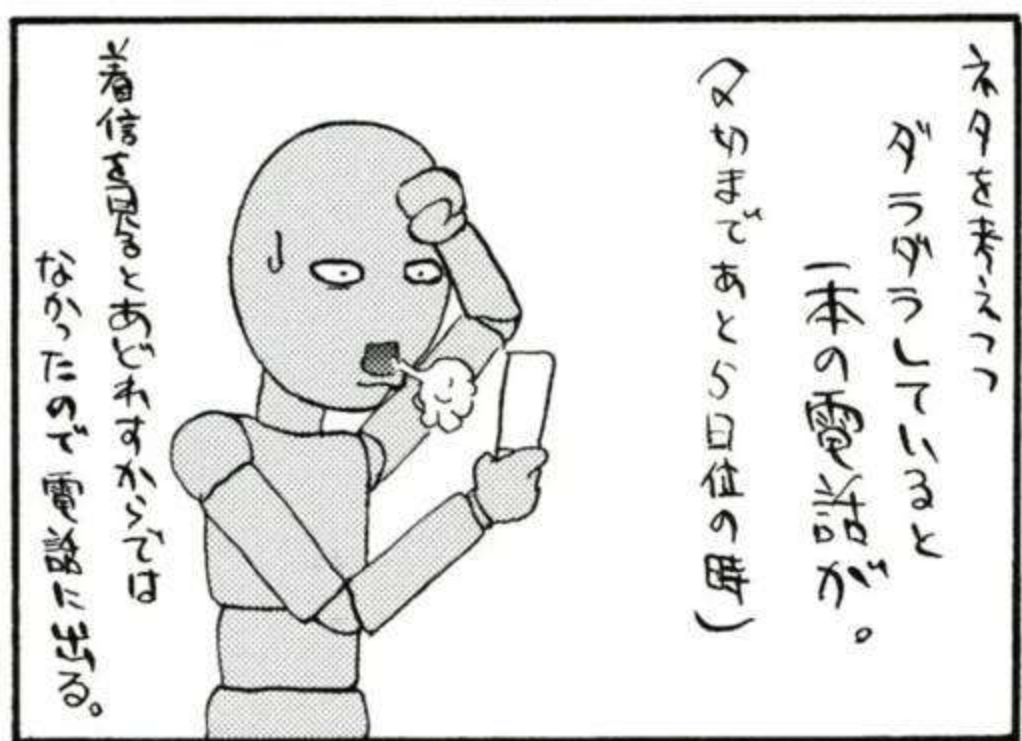 ネタを考えつつ
ダラダラしていると
一本の電話が。
(〆切まであと5日位の時)
着信を見るとあどれすからでは
なかったので電話に出る。